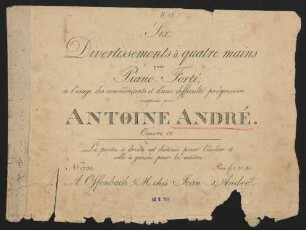 Six
Divertissements à quatre mains
pour
Piano-Forté,
à l'usage des commençants et d'une difficulté progressive
composés par
ANTOINE ANDRÉ.
Oeuvre
La partie à droite est destinée pour l'élève et
celle à gauche pour le maître
No.
A Offenbach s/M, chés Jean André